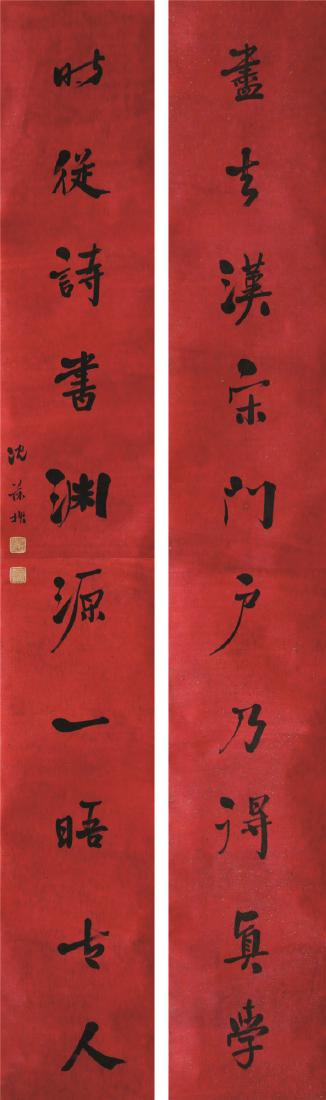 盡去漢宋門户乃得眞學
時從詩書渊源一晤古人
沈葆楨